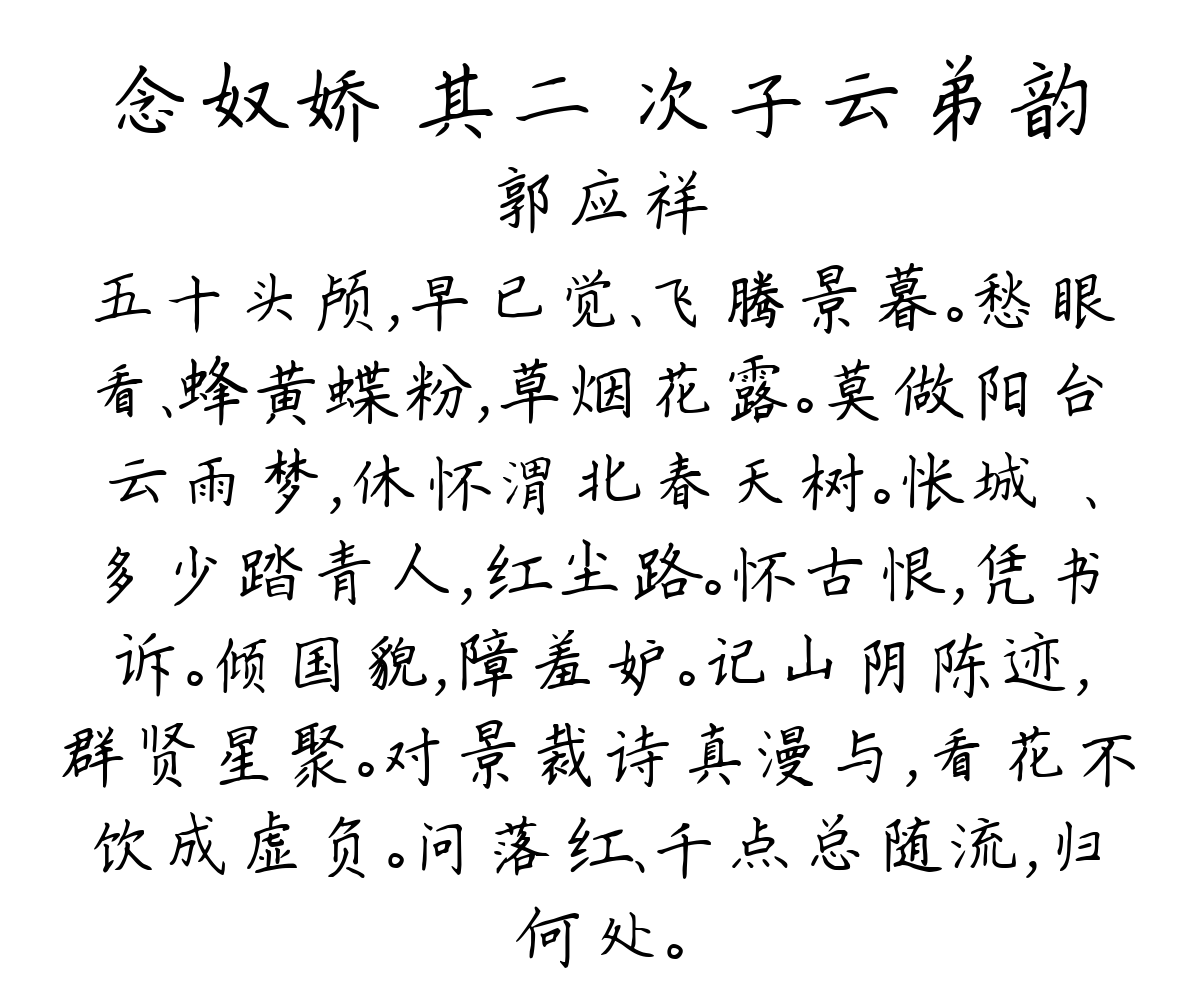 念奴娇 其二 次子云弟韵
郭应祥
五十头颅,早已觉、飞腾景暮。愁眼
看、蜂黄蝶粉,草烟花露。莫做阳台
云雨梦,休怀渭北春天树。怅城 、
多少踏青人,红尘路。怀古恨,凭书
诉。倾国貌,障羞妒。记山阴陈迹,
群贤星聚。对景裁诗真漫与,看花不
饮成虚负。问落红、千点总随流,归
何处。